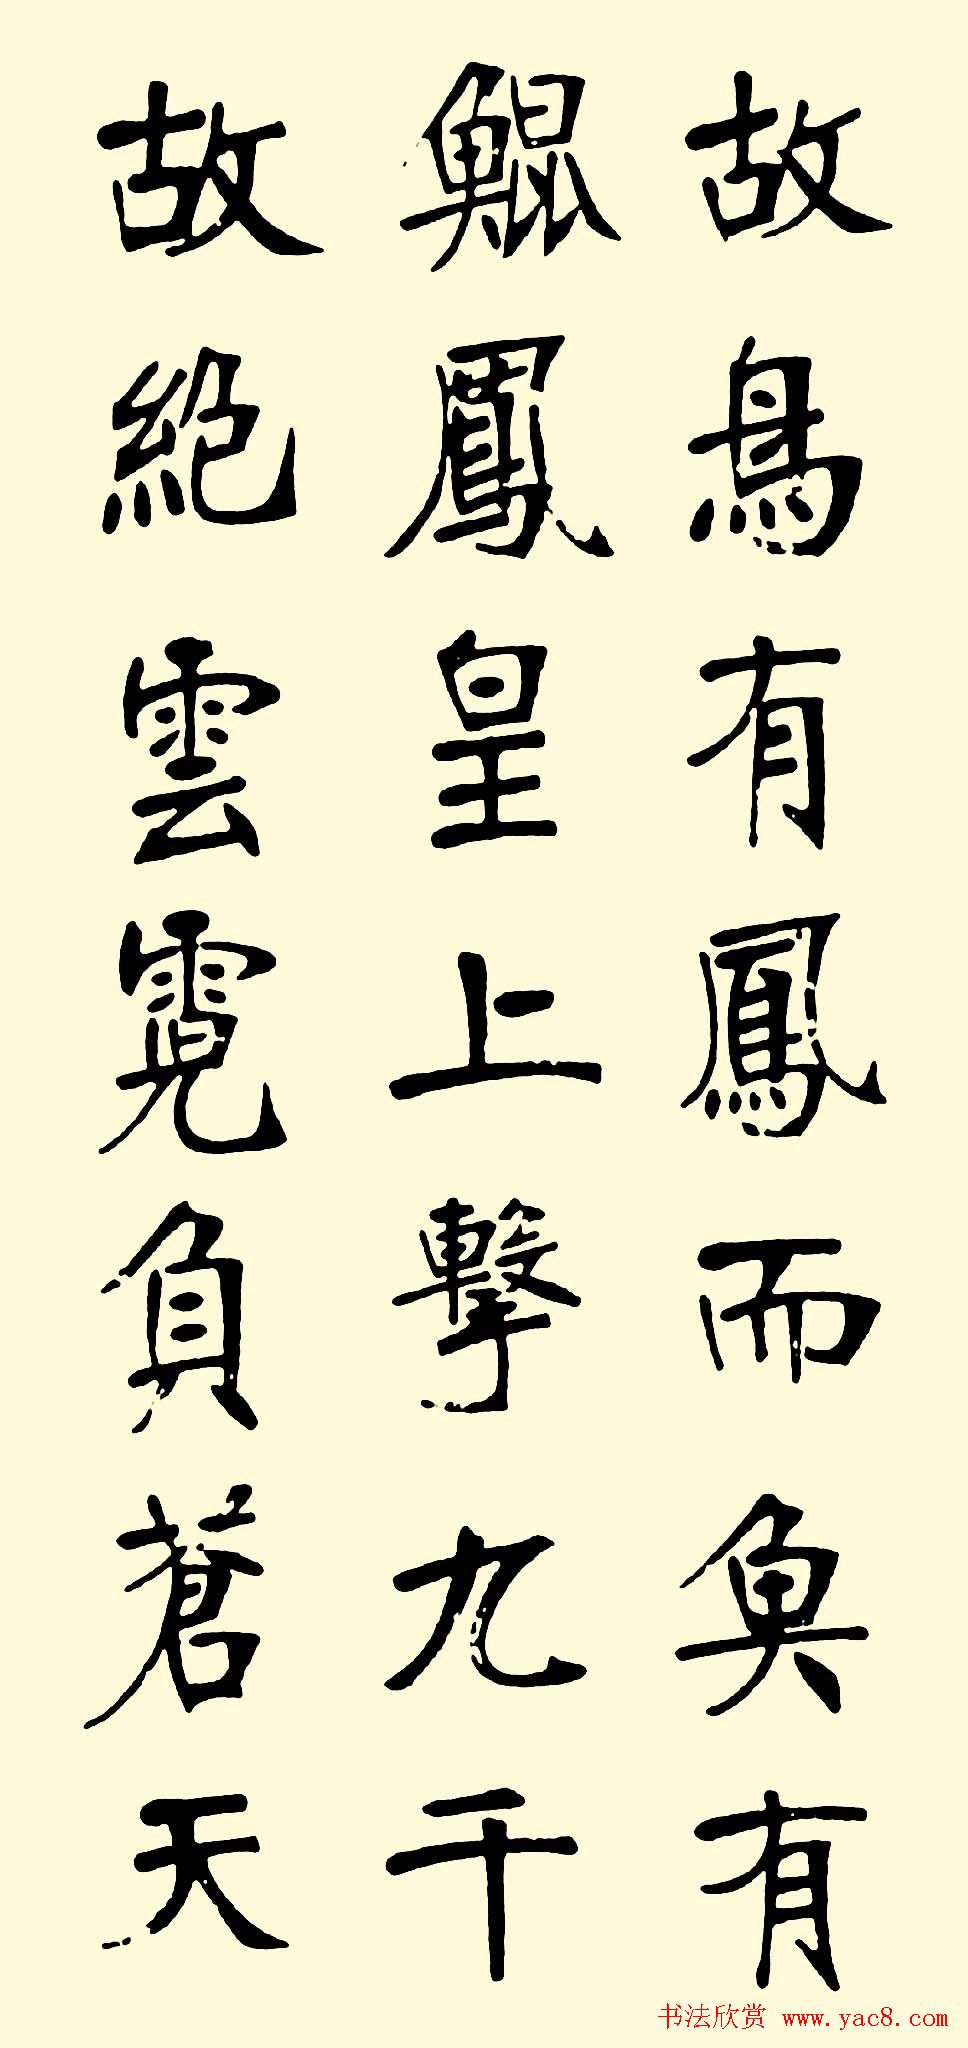 故鳥有鳳而魚有
鯤鳳皇上擊九千
故絕雲霓負蒼天
书法欣赏 www.yac8.com